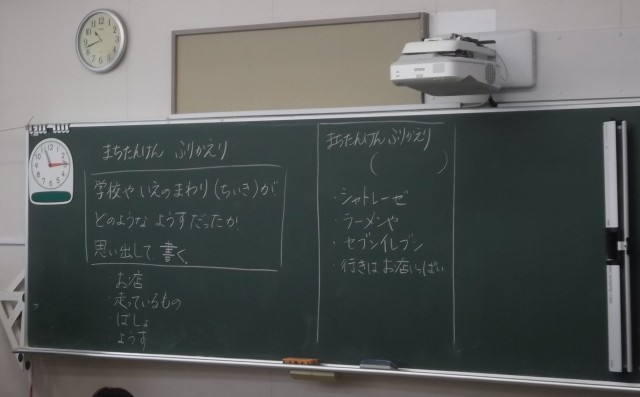 まちたんけん ふりかえり
学校や いえのまわり(ちいき)が
どのような ようすだったか
思い出して 書く。
お店
・走っているもの
ばしょ
ようす
まちたんけん ふりかえり
( )
・シャトレーゼ
・ラーメンや
・セブンイレブン
・行きは お店いっぱい